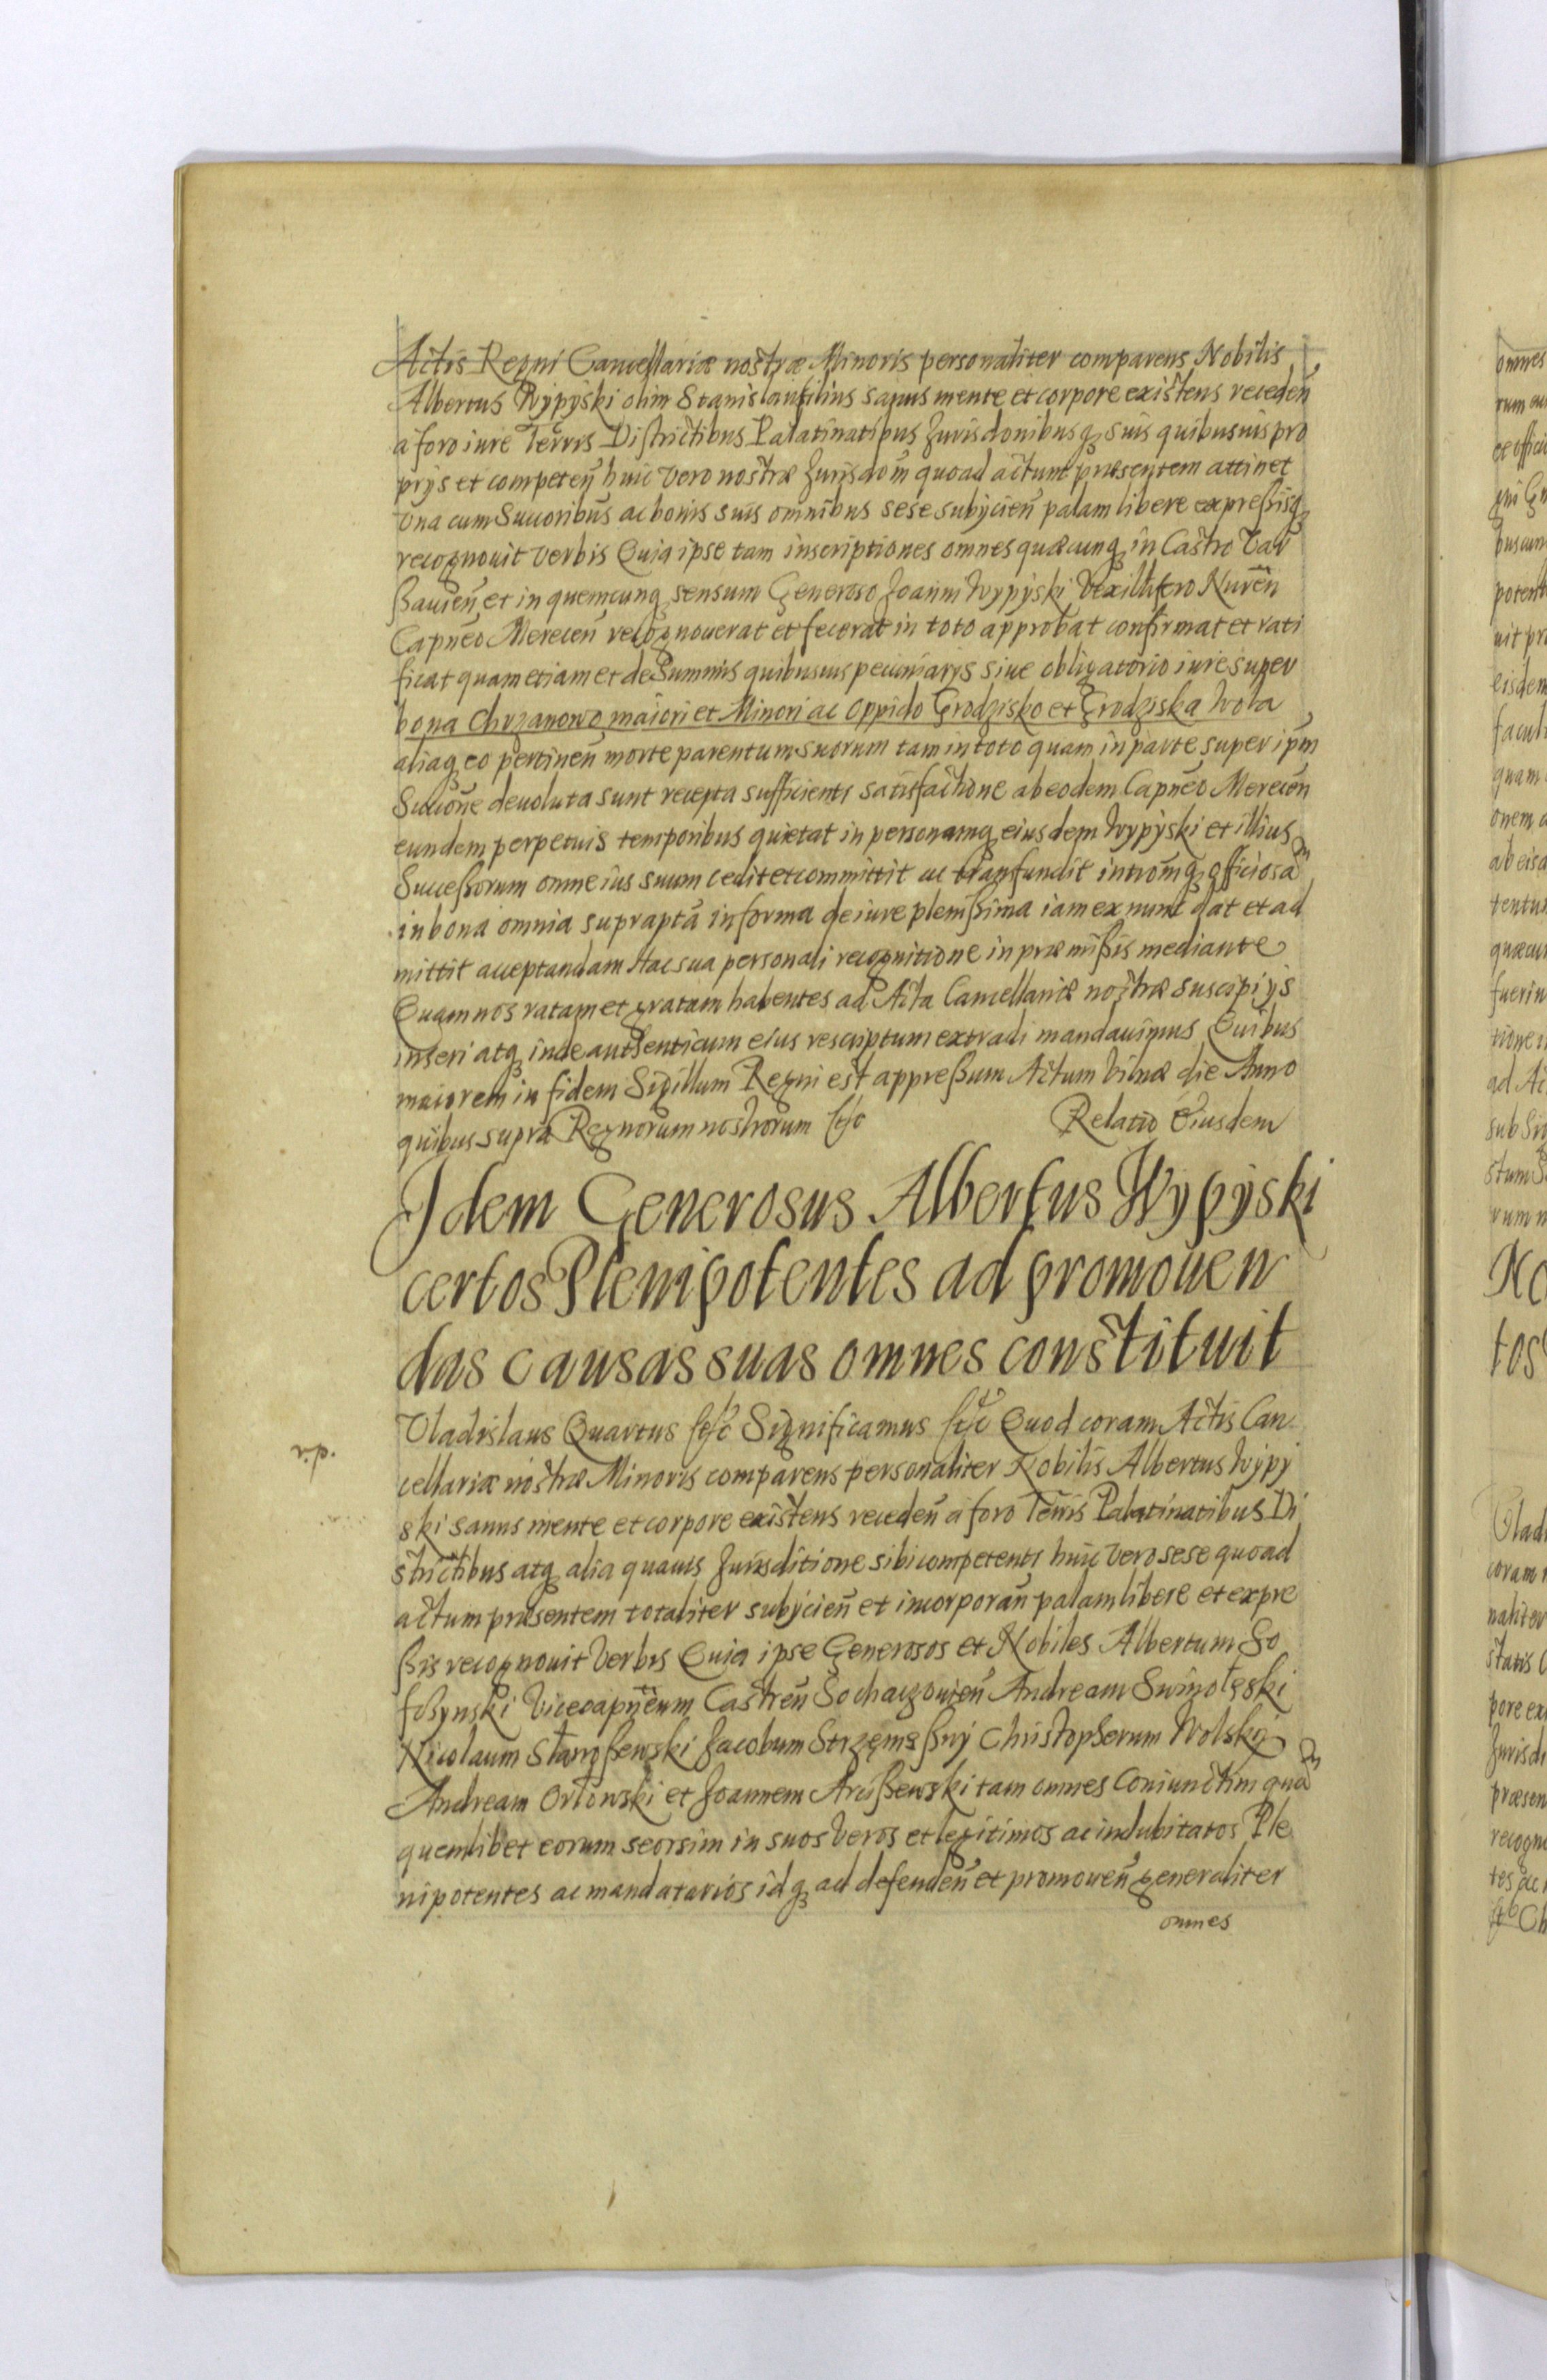 Actis Regni Cancellariæ nostræ Minoris personaliter comparens Nobilis
Albertus Wypÿski olim Stanislai filius sanus mente et corpore existens receden̄
a foro iure Terris Districtibus Palatinatibus Jurisdonibusq̧ suis quibusuis pro
prijs et competen̄ huic vero nostræ Jurisdom̄ quoad actum præsentem attinet
Una cum Succoribus ac bonis suis omnibus sese subÿcien̄ palam libere expreßisq̧
recognouit verbis Quia ipse tam inscriptiones omnes quæcunq̧ in Castro Var
ßauien̄ et in quemcunq̧ sensum Generoso Joanni Wypÿski Vexillifero Nuren̄
Capneo Merecen̄ recognouerat et fecerat in toto approbat confirmat et rati
ficat quam etiam et de Summis quibusuis pecuniarÿs siue obligatorio iure super
bona Chrzanowo maiori et Minori ac Oppido Grodzisko et Grodziska Wola
aliaq̧ eo pertinen̄ morte parentum suorum tam in toto quam in parte super ipm̄
Succone deuoluta sunt recepta sufficienti satisfactione ab eodem Capneo Merecen̄
eundem perpetuis temporibus quietat in personamq̧ eiusdem Wypÿski et illius
Succeßorum omne ius suum cedit et committit ac transfundit intromq̧ officiosam
in bona omnia suprapta in forma de iure plenißima iam ex nunc dat et ad
mittit acceptandam Hac sua personali recognitione in præmißis mediante
Quam nos ratam et gratam habentes ad Acta Cancellariæ nostræ suscipi ijs
inseri atq̧ inde authenticum eius rescriptum extradi mandauimus Quibus
maiorem in fidem Sigillum Regni est appreßum Actum Vilnæ die Anno
quibus supra Regnorum nostrorum &c Relatio Eiusdem
Idem Generosus Albertus Wypÿski
certos Plenipotentes ad promouen
das causas suas omnes constituit
Vladislaus Quartus &c Significamus &c Quod coram Actis Can
cellariæ nostræ Minoris comparens personaliter Nobilis Albertus Wypÿ
ski sanus mente et corpore existens receden̄ a foro Terris Palatinatibus Di
strictibus atq̧ alia quauis Jurisditione sibi competenti huic vero sese quoad
actum præsentem totaliter subÿcien̄ et incorporan̄ palam libere et expre
ßis recognouit Verbis Quia ipse Generosos et Nobiles Albertum
Vicecapneum Castren̄ Sochaczouien̄ Andream
Nicolaum Jacobum Christopherum Wolsky
Andream Orłowski et Joannem Arcißewski tam omnes Coniunctim quam
quemlibet eorum seorsim in suos Veros et legitimos ac indubitatos Ple
nipotentes ac mandatarios idq̧ ad defenden̄ et promouen̄ generaliter
omnes